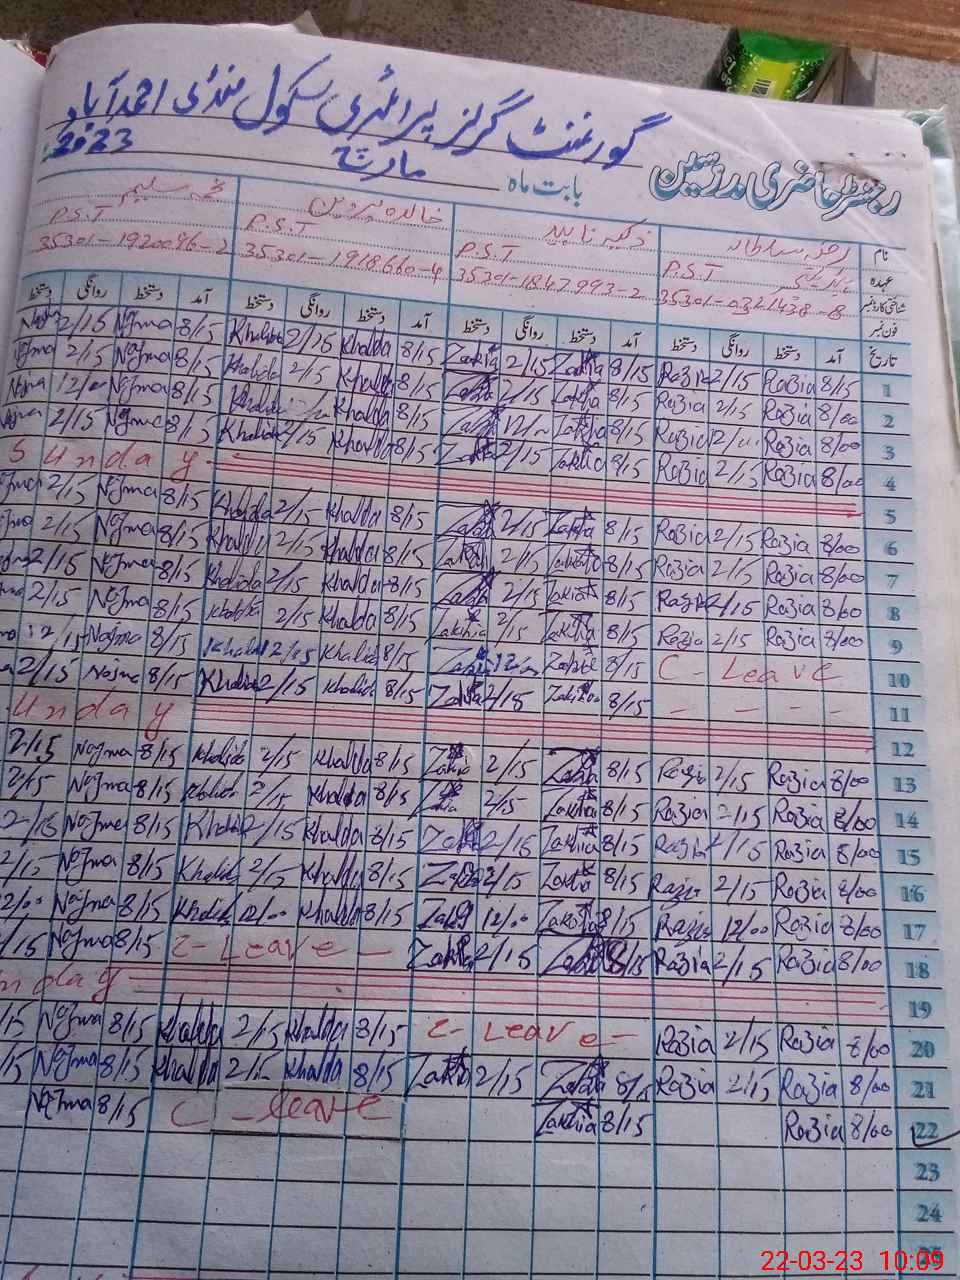 گورنمنٹ گرلز پرائمری سکول منڈی احمد آباد
2023
رجسٹر حاضری مدرسین بابت ماہ مارچ
نام رضیہ سلطانہ ذکیہ ناہید خالدہ پروین نجمہ سلیم
عہدہ P.S.T P.S.T P.S.T P.S.T
شناختی کارڈ نمبر 35301-1847993-2 35301-1918660-4 35301-1920086-2
فون نمبر
تاریخ آمد دستخط روانگی دستخط آمد دستخط روانگی دستخط آمد دستخط روانگی دستخط آمد دستخط روانگی دستخط
1 8/15 Razia 2/15 Razia 8/15 Zakia 2/15 Zakia 8/15 Khalda Khalida 8/15 Najma 2/15 Najma
2 8/00 Razia 2/15 Razia 8/15 Zakia 2/15 Zakia 8/15 Khalda 2/15 Khalida 8/15 Najma 2/15 Najma
3 8/00 Razia Razia 8/15 Zakia Zakia 8/15 Khalda Khalida 8/15 Najma 12/00 Najma
4 8/00 Razia 2/15 Razia 8/15 Zakia 2/15 Zakia 8/15 Khalda 2/15 Khalida 8/15 Najma 2/15 Najma
5 Sunday
6 8/00 Razia 2/15 Razia 8/15 Zakia 2/15 Zakia 8/15 Khalda 2/15 Khalida 8/15 Najma 2/15 Najma
7 8/00 Razia 2/15 Razia 8/15 Zakia 2/15 Zakia 8/15 Khalda 2/15 Khalida 8/15 Najma 2/15
8 8/00 Razia 2/15 Razia 8/15 Zakia 2/15 Zakia 8/15 Khalda 2/15 Khalida 8/15 Najma 2/15
9 8/00 Razia 2/15 Razia 8/15 Zakia 2/15 Zakia 8/15 Khalda 2/15 Khalida 8/15 Najma 2/15
10 C - Leave 8/15 Zakia Zakia 8/15 Khalda Khalida 8/15 Najma
11 - - - - 8/15 Zakia 2/15 Zakia 8/15 Khalida 2/15 Khalida 8/15 Najma 2/15
12 unday
13 8/00 Razia 2/15 Razia 8/15 Zakia 2/15 Zakia 8/15 Khalda 2/15 Khalida 8/15 Najma 2/15
14 8/00 Razia 2/15 Razia 8/15 Zakia 2/15 Zakia 8/15 Khalda 2/15 Khalida 8/15 Najma 2/15
15 8/00 Razia 2/15 Razia 8/15 Zakia Zakia 8/15 Khalda 2/15 Khalida 8/15 Najma
16 8/00 Razia 2/15 Razia 8/15 Zakia 2/15 Zakia 8/15 Khalda 2/15 Khalida 8/15 Najma 2/15
17 8/00 Razia 12/00 Razia 8/15 Zakia 12/00 Zakia 8/15 Khalda 12/00 Khalida 8/15 Najma 12/00
18 8/00 Razia 2/15 Razia 8/15 Zakia 2/15 Zakia C - Leave - 8/15 Najma /15
19 nday
20 8/00 Razia 2/15 Razia C - Leave - 8/15 Khalda 2/15 Khalda 8/15 Najma /15
21 8/00 Razia 2/15 Razia 8/15 Zakia 2/15 Zakia 8/15 Khalda 2/15 Khalda 8/15 Najma /15
22 8/00 Razia 8/15 Zakia C - leave 8/15 Najma
23
24
25
22-03-23 10:09